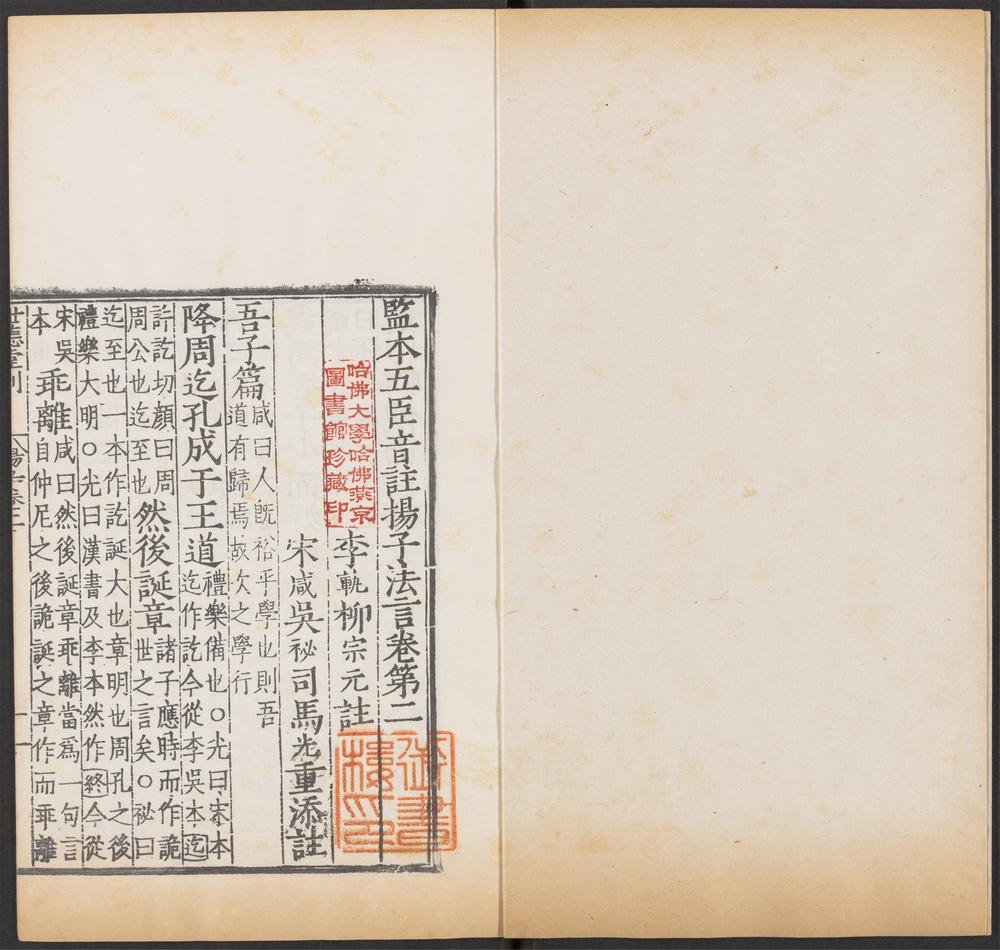 監本五臣音註揚子法言卷第二
李軌柳宗元註
宋咸吳祕司馬光重添註
吾子篇咸曰人旣裕乎學也則吾
道有歸焉故次之學行
降周迄孔成于王道禮樂備也○光曰宋本
迄作訖今從李吳本迄
許訖切顔曰周
周公也迄至也然後誕章諸子應時而作詭
世之言矣○祕曰
迄至也一本作訖誕大也章明也周孔之後
禮樂大明○光曰漢書及李本然作終今從
宋吳
本乖離咸曰然後誕章乖離當爲一句言
自仲尼之後詭誕之章作而乖離
世德堂刊
哈佛大學哈佛燕京
圖書館珍藏印
御書
樓印